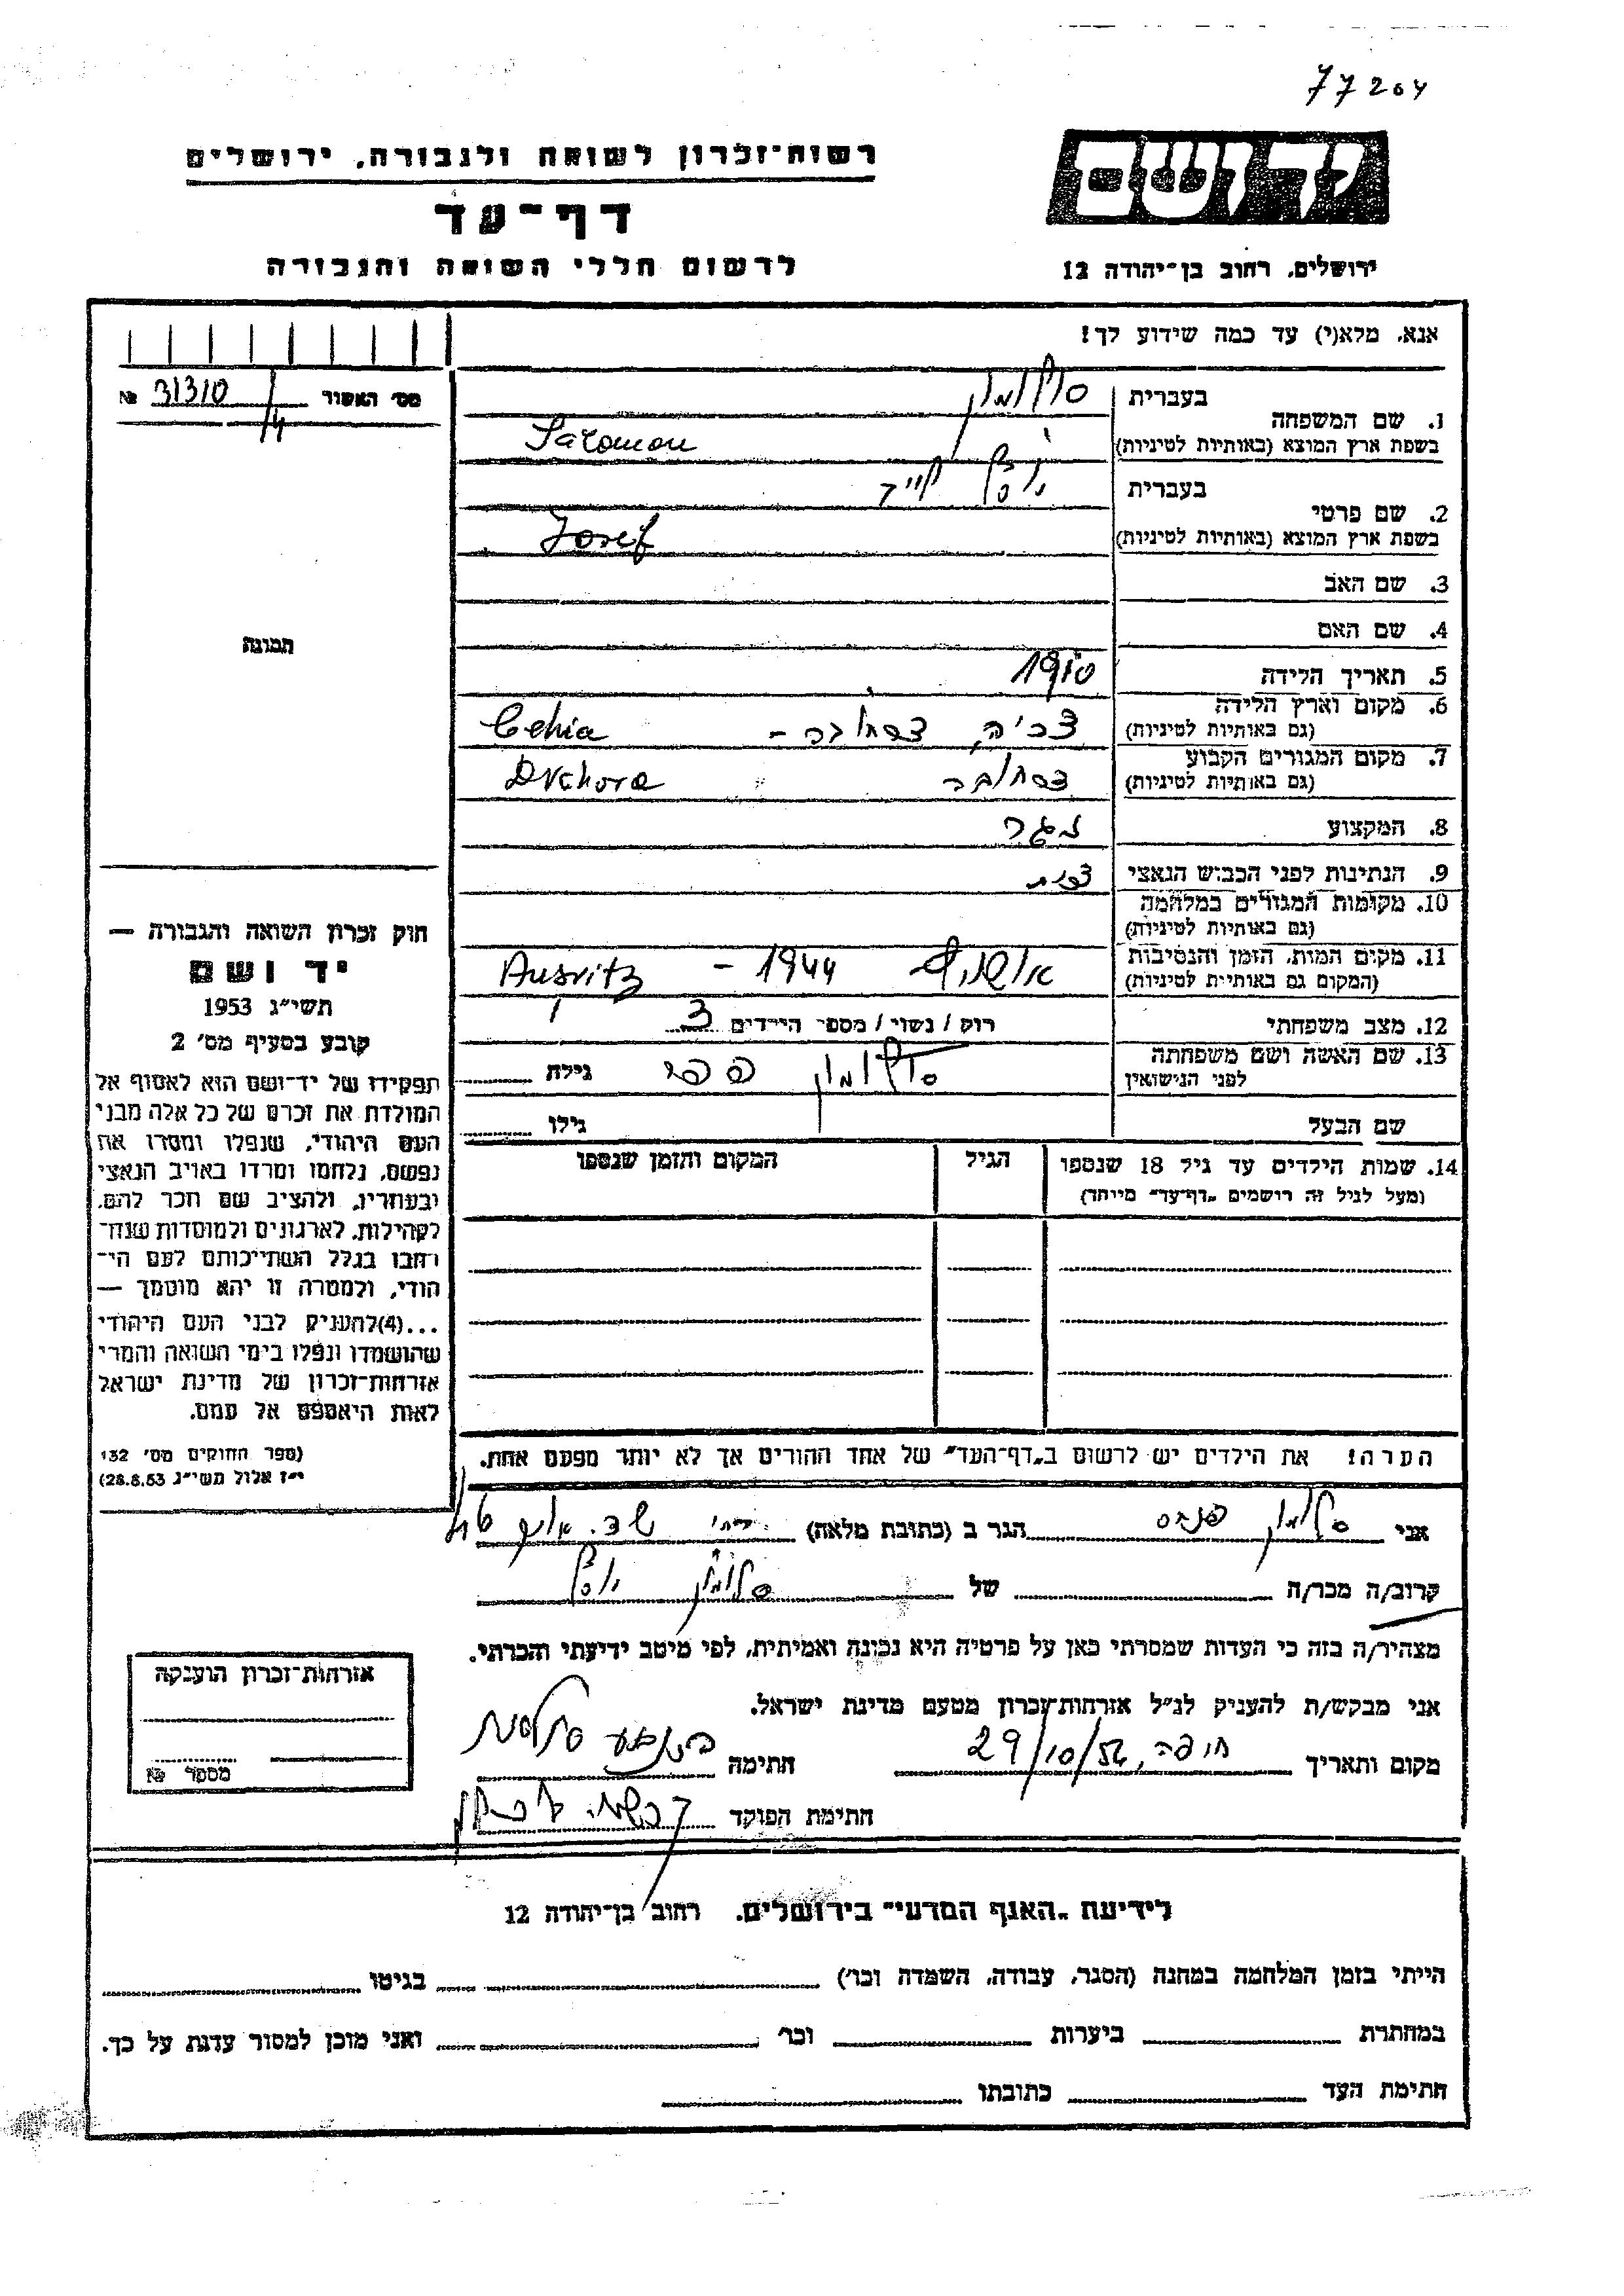 77204
יד ושם
רשות־זכרון לשואה ולגבורה, ירושלים
דף־עד
לרשום חללי השואה והגבורה
ירושלים, רחוב בן־יהודה 12
אנא, מלא(י) עד כמה שידוע לך!
מס׳ האשור № 31310/4
1. שם המשפחה
בעברית סולומון
בשפת ארץ המוצא (באותיות לטיניות) Salomon
2. שם פרטי
בעברית יוסף
בשפת ארץ המוצא (באותיות לטיניות) Josef
3. שם האב
4. שם האם
5. תאריך הלידה 1910
6. מקום וארץ הלידה
(גם באותיות לטיניות) צ׳כיה, Cehia
7. מקום המגורים הקבוע
(גם באותיות לטיניות)
8. המקצוע נגר
9. הנתינות לפני הכבוש הנאצי צ׳כית
10. מקומות המגורים במלחמה
(גם באותיות לטיניות)
11. מקום המות, הזמן והנסיבות
(המקום גם באותיות לטיניות) אושוויץ 1944 - Ausvitz
12. מצב משפחתי רווק / נשוי / מספר הילדים 3
13. שם האשה ושם משפחתה
לפני הנישואין סולומון גילה
שם הבעל גילו
14. שמות הילדים עד גיל 18 שנספו
(מעל לגיל זה רושמים „דף־עד” מייחד)
הגיל
המקום והזמן שנספו
הערה! את הילדים יש לרשום ב„דף־העד” של אחד ההורים אך לא יותר מפעם אחת.
תמונה
חוק זכרון השואה והגבורה —
יד ושם
תשי״ג 1953
קובע בסעיף מס׳ 2
תפקידו של יד־ושם הוא לאסוף אל
המולדת את זכרם של כל אלה מבני
העם היהודי, שנפלו ומסרו את
נפשם, נלחמו ומרדו באויב הנאצי
ובעוזריו, ולהציב שם וזכר להם,
לקהילות, לארגונים ולמוסדות שנח־
רחבו בגלל השתייכותם לעם הי־
הודי, ולמטרה זו יהא מוסמך —
...(4)להעניק לבני העם היהודי
שהושמדו ונפלו בימי השואה והמרי
אזרחות־זכרון של מדינת ישראל
לאות היאספם אל עמם.
(ספר החוקים מס׳ 132
י״ז אלול תשי״ג 28.8.53)
אני סלומון הגר ב (כתובת מלאה)
קרוב/ה מכר/ה של סלומון יוסף
מצהיר/ה בזה כי העדות שמסרתי כאן על פרטיה היא נכונה ואמיתית, לפי מיטב ידיעתי והכרתי.
אני מבקש/ת להעניק לנ״ל אזרחות־זכרון מטעם מדינת ישראל.
מקום ותאריך חיפה, 29/10/56 חתימה
חתימת הפוקד
אזרחות־זכרון הוענקה
מספר №
לידיעת „האגף המדעי” בירושלים, רחוב בן־יהודה 12
הייתי בזמן המלחמה במחנה (הסגר, עבודה, השמדה וכו׳) בגיטו
במחתרת ביערות וכו׳ ואני מוכן למסור עדות על כך.
חתימת העד כתובתו